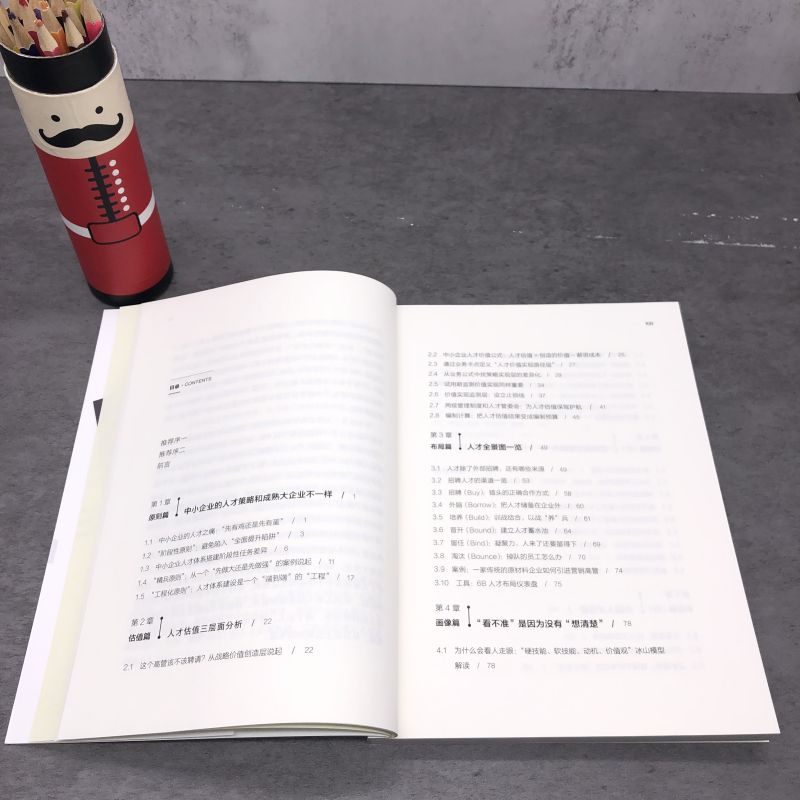 目录 · CONTENTS
推荐序一
推荐序二
前言
第 1 章
原则篇 中小企业的人才策略和成熟大企业不一样 / 1
1.1 中小企业的人才之痛：“先有鸡还是先有蛋” / 1
1.2 “阶段性原则”：避免陷入“全面提升陷阱” / 3
1.3 中小企业人才体系搭建阶段性任务差异 / 6
1.4 “精兵原则”：从一个“先做大还是先做强”的案例说起 / 11
1.5 “工程化原则”：人才体系建设是一个“端到端”的“工程” / 17
第 2 章
估值篇 人才估值三层面分析 / 22
2.1 这个高管该不该聘请？从战略价值创造层说起 / 22
XIII
2.2 中小企业人才价值公式：人才估值＝创造的价值－解质成本 / 26
2.3 通过业务卡点定义“人才价值实现路径层” / 27
2.4 从业务公式中找策略实现层的差异化 / 29
2.5 试用期监测价值实现同样重要 / 34
2.6 价值实现监测层：设立止损线 / 37
2.7 两级管理制度和人才管委会：为人才估值保驾护航 / 41
2.8 编制计算：把人才估值结果变成编制预算 / 45
第 3 章
布局篇 人才全景图一览 / 49
3.1 人才除了外部招聘，还有哪些来源 / 49
3.2 招聘人才的渠道一览 / 53
3.3 招聘（Buy）：猎头的正确合作方式 / 58
3.4 外脑（Borrow）：把人才储备在企业外 / 60
3.5 培养（Build）：训战结合，以战“养”兵 / 61
3.6 晋升（Bound）：建立人才蓄水池 / 64
3.7 留任（Bind）：凝聚力，人来了还要留得下 / 68
3.8 淘汰（Bounce）：掉队的员工怎么办 / 70
3.9 案例：一家传统的原材料企业如何引进营销高管 / 74
3.10 工具：6B 人才布局仪表盘 / 75
第 4 章
画像篇 “看不准”是因为没有“想清楚” / 78
4.1 为什么会看人走眼：“硬技能、软技能、动机、价值观”冰山模型
解读 / 78